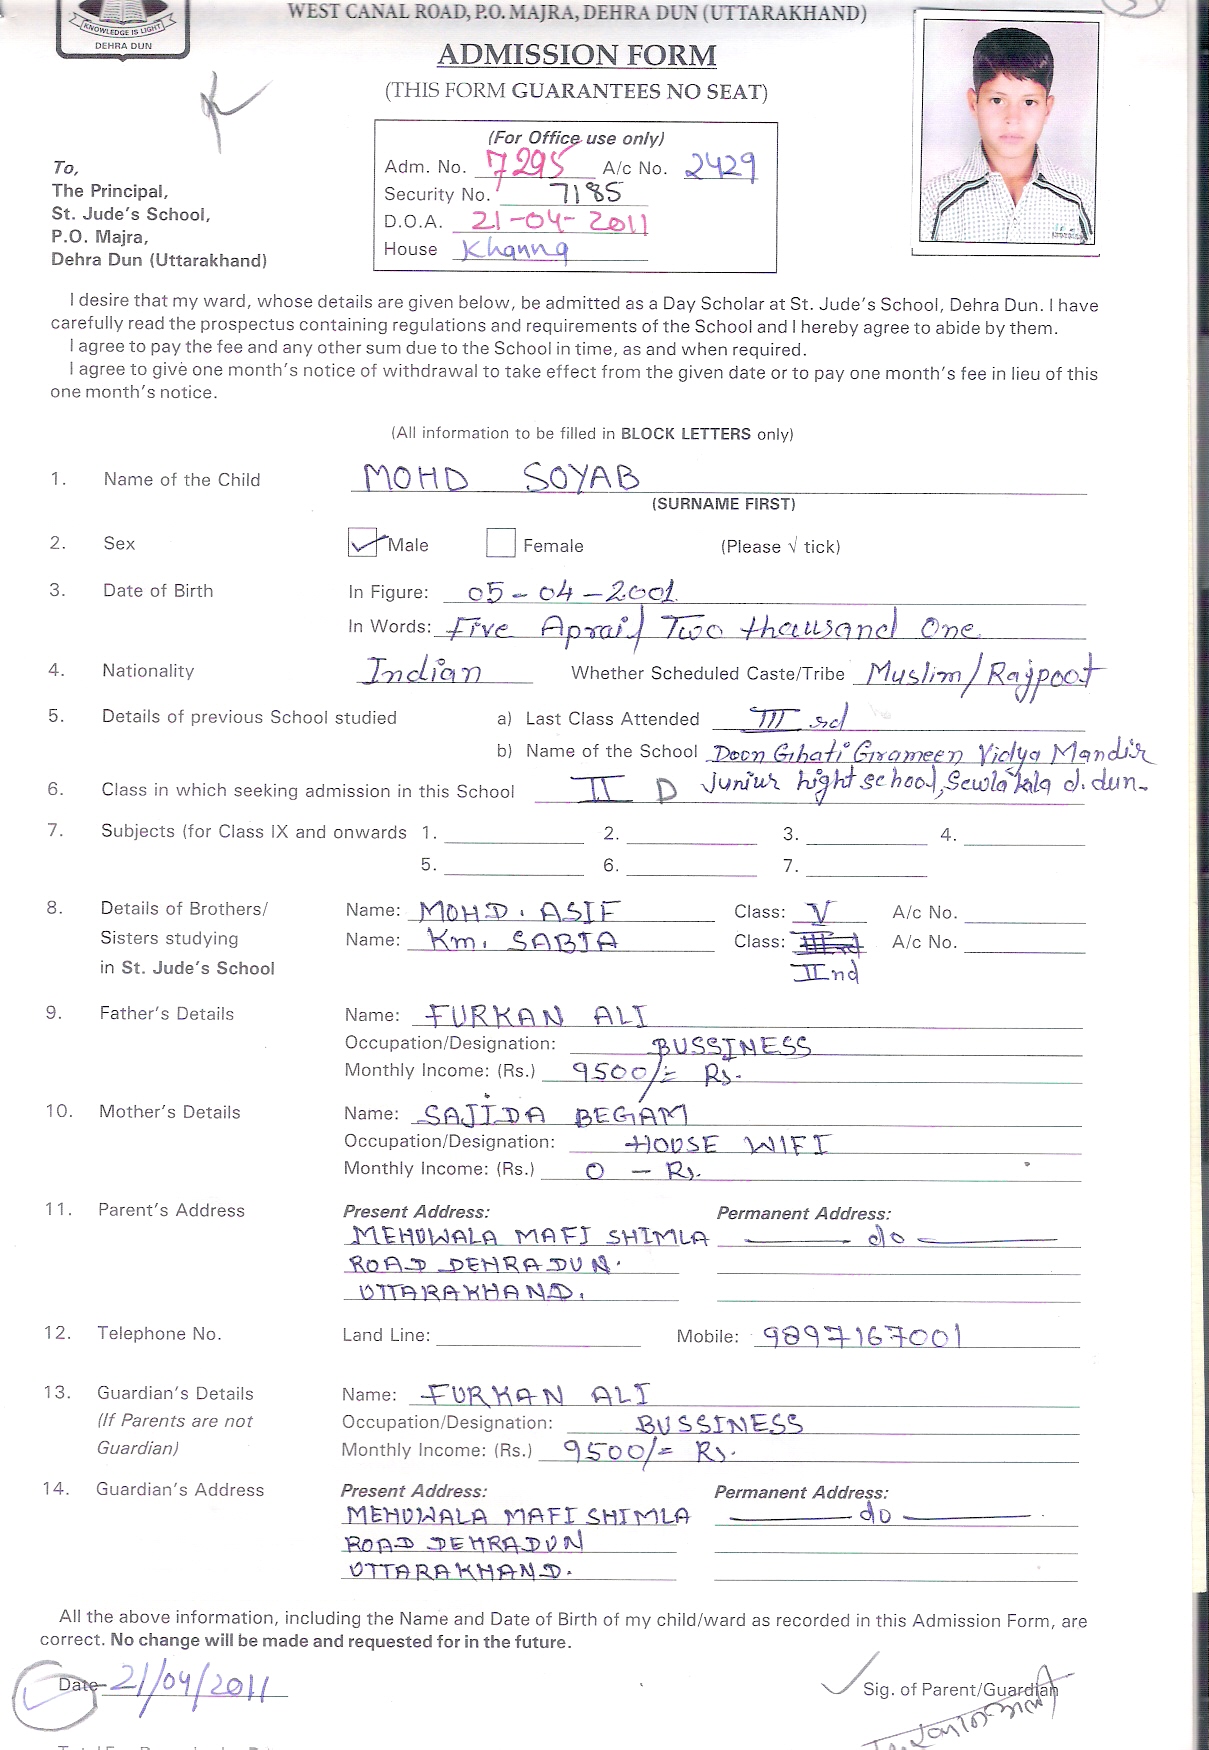 WEST CANAL ROAD, P.O. MAJRA, DEHRA DUN (UTTARAKHAND)
KNOWLEDGE IS LIGHT
DEHRA DUN
ADMISSION FORM
(THIS FORM GUARANTEES NO SEAT)
(For Office use only)
Adm. No. 7295 A/c No. 2429
Security No. 7185
D.O.A. 21-04-2011
House Khanna
To,
The Principal,
St. Jude's School,
P.O. Majra,
Dehra Dun (Uttarakhand)
I desire that my ward, whose details are given below, be admitted as a Day Scholar at St. Jude's School, Dehra Dun. I have
carefully read the prospectus containing regulations and requirements of the School and I hereby agree to abide by them.
I agree to pay the fee and any other sum due to the School in time, as and when required.
I agree to give one month's notice of withdrawal to take effect from the given date or to pay one month's fee in lieu of this
one month's notice.
(All information to be filled in BLOCK LETTERS only)
1. Name of the Child MOHD SOYAB
(SURNAME FIRST)
2. Sex Male Female (Please √ tick)
3. Date of Birth In Figure: 05-04-2001
In Words: Five Aprail Two thousand One
4. Nationality Indian Whether Scheduled Caste/Tribe Muslim/Rajpoot
5. Details of previous School studied a) Last Class Attended III rd
b) Name of the School Doon Ghati Grameen Vidya Mandir
Juniur hight school, Sewla kala d.dun-
6. Class in which seeking admission in this School II D
7. Subjects (for Class IX and onwards 1. 2. 3. 4.
5. 6. 7.
8. Details of Brothers/ Name: MOHD. ASIF Class: V A/c No.
Sisters studying Name: Km. SABIA Class: A/c No.
in St. Jude's School IInd
9. Father's Details Name: FURKAN ALI
Occupation/Designation: BUSSINESS
Monthly Income: (Rs.) 9500/= Rs.
10. Mother's Details Name: SAJIDA BEGAM
Occupation/Designation: HOUSE WIFI
Monthly Income: (Rs.) 0 - Rs.
11. Parent's Address Present Address: Permanent Address:
MEHUWALA MAFI SHIMLA do
ROAD DEHRADUN.
UTTARAKHAND.
12. Telephone No. Land Line: Mobile: 9897167001
13. Guardian's Details Name: FURKAN ALI
(If Parents are not Occupation/Designation: BUSSINESS
Guardian) Monthly Income: (Rs.) 9500/= Rs.
14. Guardian's Address Present Address: Permanent Address:
MEHUWALA MAFI SHIMLA do
ROAD DEHRADUN
UTTARAKHAND.
All the above information, including the Name and Date of Birth of my child/ward as recorded in this Admission Form, are
correct. No change will be made and requested for in the future.
Date 21/04/2011
Sig. of Parent/Guardian